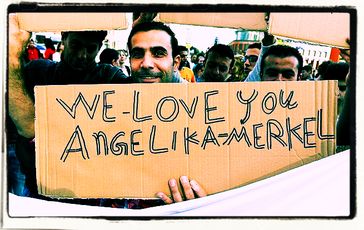 WE-LOVE you
ANGELIKA-MERKEL